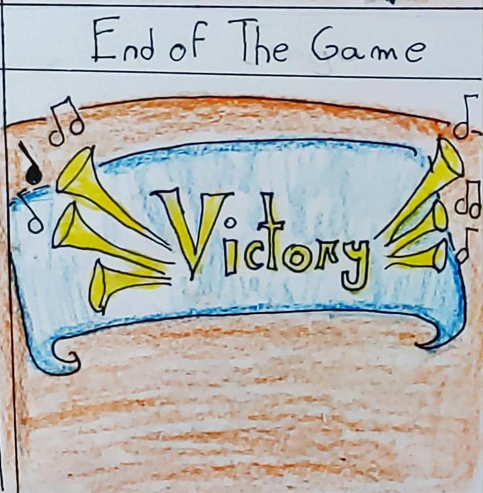 End of The Game
Victory